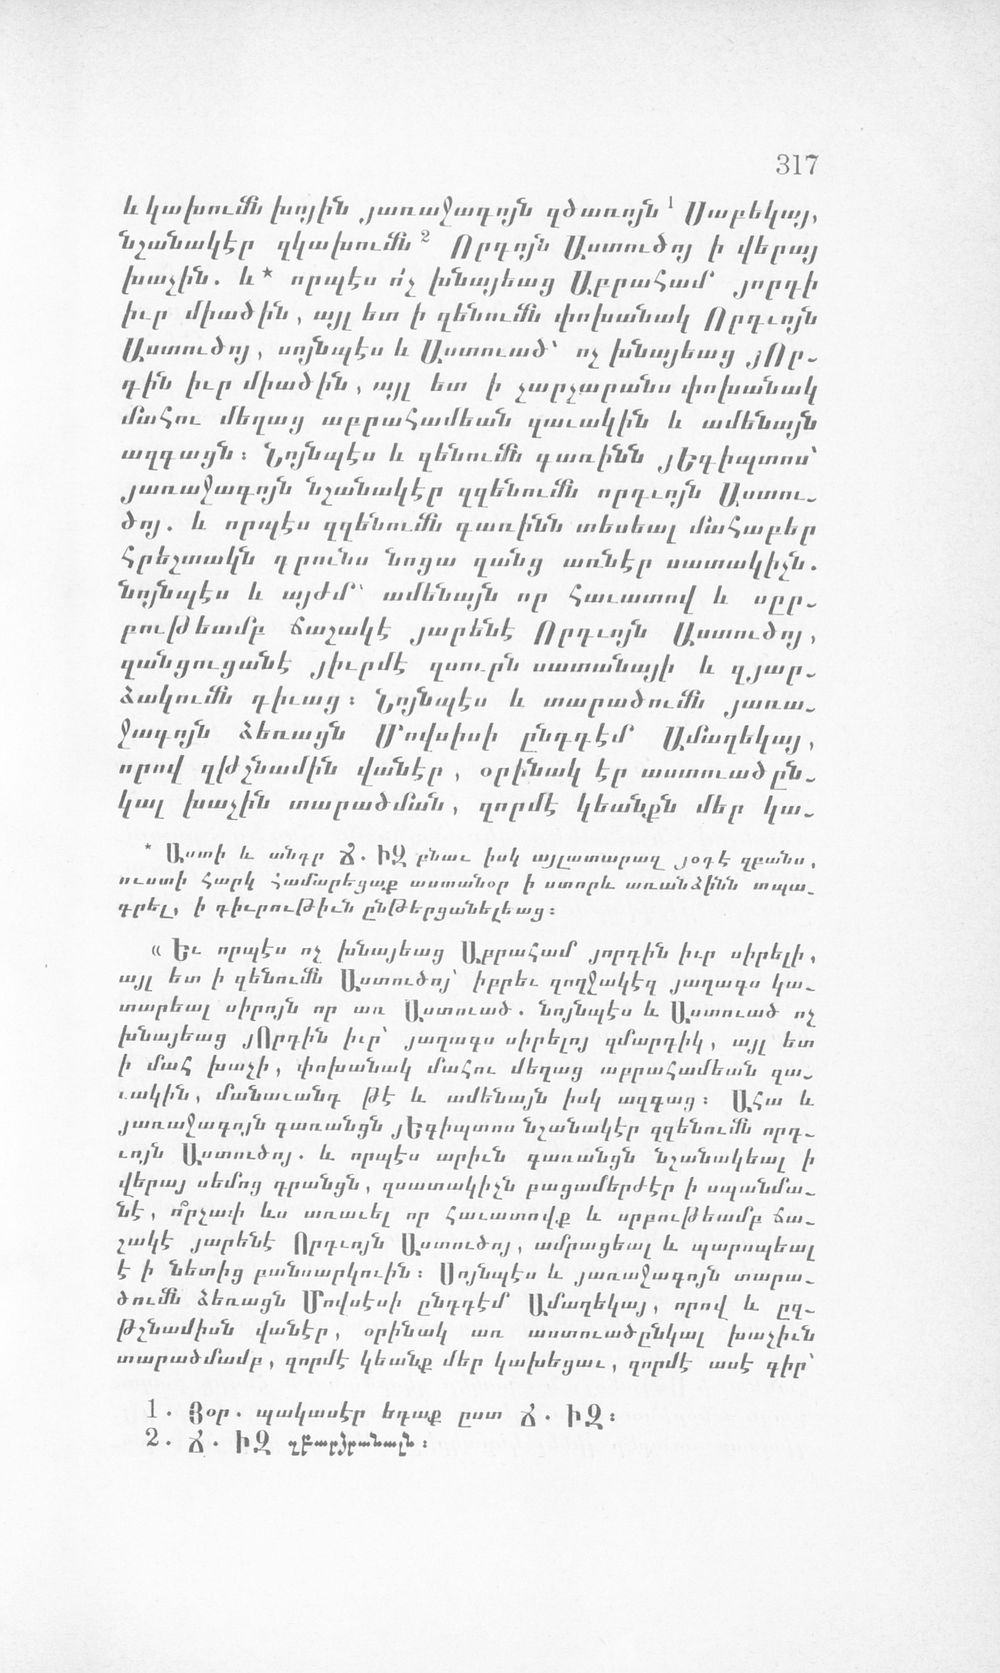 317
և կախումն խոյին յառաջագոյն զծառոյն 1 Սաբեկայ,
նշանակէր զկախումն 2 Որդոյն Աստուծոյ ի վերայ
խաչին. և* որպէս ո՛չ խնայեաց Աբրահամ յորդի
իւր միածին, այլ ետ ի զենումն փոխանակ Որդւոյն
Աստուծոյ, սոյնպէս և Աստուած՝ ոչ խնայեաց յՈր-
դին իւր միածին, այլ ետ ի չարչարանս փոխանակ
մահու մեղաց աբրահամեան զաւակին և ամենայն
ազգացն։ Նոյնպէս և զենումն գառինն յԵգիպտոս՝
յառաջագոյն նշանակէր զզենումն որդւոյն Աստու-
ծոյ. և որպէս զզենումն գառինն տեսեալ մահաբեր
հրեշտակն դրունս նոցա զանց առնէր սատակիչն.
նոյնպէս և այժմ՝ ամենայն որ հաւատով և սըր-
բութեամբ ճաշակէ յարենէ Որդւոյն Աստուծոյ,
զանցուցանէ յիւրմէ զսուրն սատանայի և զյար-
ձակումն դիւաց։ Նոյնպէս և տարածումն յառա-
ջագոյն ձեռացն Մովսիսի ընդդէմ Ամաղեկայ,
որով զթշնամին վանէր, օրինակ էր աստուած ըն-
կալ խաչին տարածման, զորմէ կեանքն մեր կա-
* Աստի և անդր Ճ. ԻԶ բնաւ իսկ այլատարազ յօդէ զբանս,
ուստի հարկ համարեցաք աստանօր ի ստորև առանձինն տպա-
գրել, ի դիւրութիւն ընթերցանելեաց։
« Եւ որպէս ոչ խնայեաց Աբրահամ յորդին իւր սիրելի,
այլ ետ ի զենումն Աստուծոյ՝ իբրեւ զողջակէզ յաղագս կա-
տարեալ սիրոյն որ առ Աստուած. նոյնպէս և Աստուած ոչ
խնայեաց յՈրդին իւր՝ յաղագս սիրելոյ զմարդիկ, այլ ետ
ի մահ խաչի, փոխանակ մահու մեղաց աբրահամեան զա-
ւակին, մանաւանդ թէ և ամենայն իսկ ազգաց։ Ահա և
յառաջագոյն գառանցն յԵգիպտոս նշանակէր զզենումն որդ-
ւոյն Աստուծոյ. և որպէս արիւն գառանցն նշանակեալ ի
վերայ սեմոց դրանցն, զսատակիչն բացամերժէր ի սպանմա-
նէ, ո՞րչափ ևս առաւել որ հաւատովք և սրբութեամբ ճա-
շակէ յարենէ Որդւոյն Աստուծոյ, ամրացեալ և պարսպեալ
է ի նետից բանսարկուին։ Սոյնպէս և յառաջագոյն տարա-
ծումն ձեռացն Մովսէսի ընդդէմ Ամաղեկայ, որով և ըզ-
թշնամիսն վանէր, օրինակ առ աստուածընկալ խաչիւն
տարածմամբ, զորմէ կեանք մեր կախեցաւ, զորմէ ասէ գիր՝
1. Յօր. պակասէր եդաք ըստ Ճ. ԻԶ։
2. Ճ. ԻԶ զբարձրանալն։